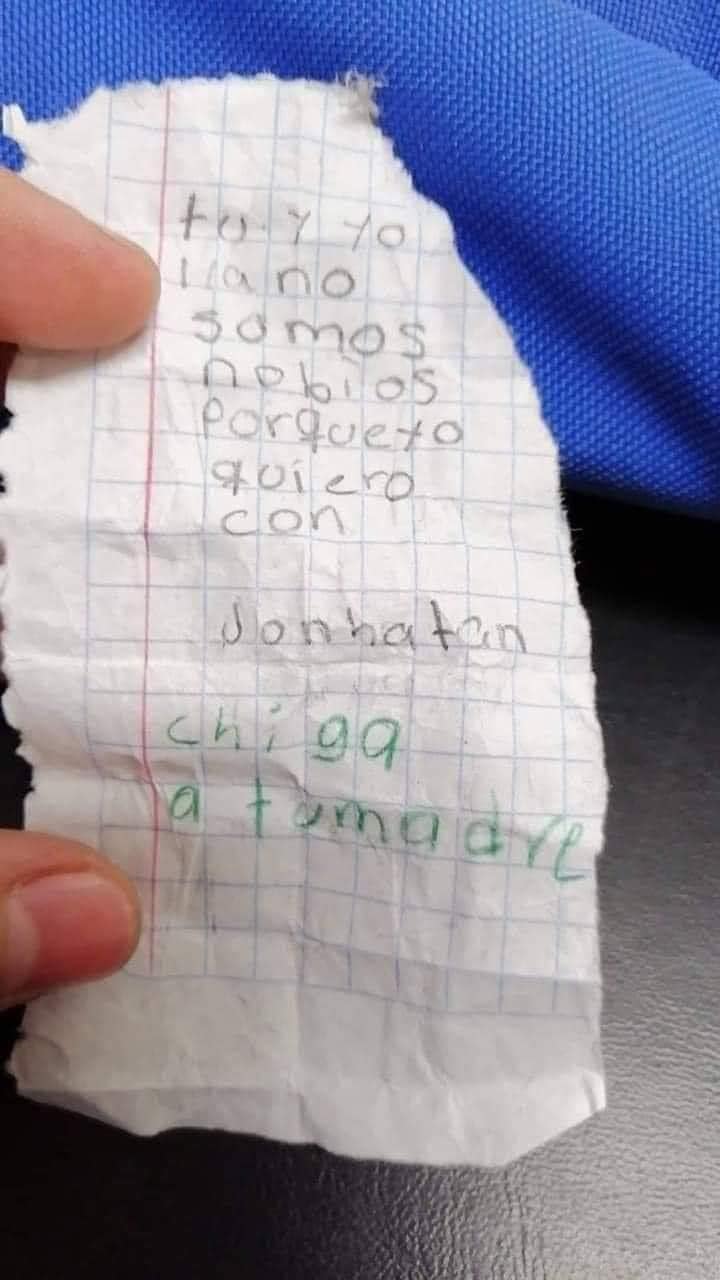 tu y yo
lla no
somos
nobios
porque yo
quiero
con
Jonhatan
chiga
a tu madre